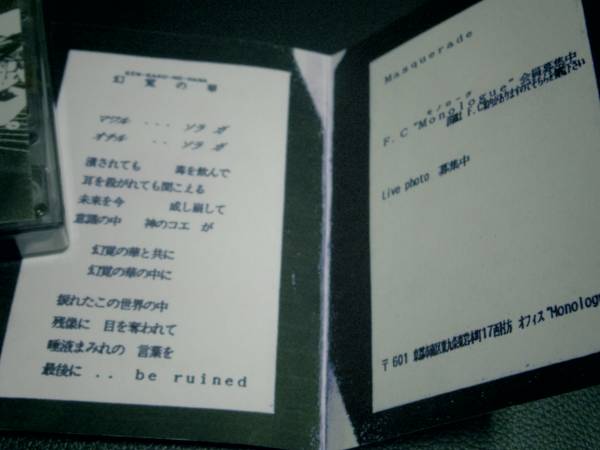 GEN-KAKU-NO-HANA
幻覚の華
マワル ... ソラ ガ
オチル .. ソラ ガ
潰されても 毒を飲んで
耳を殺がれても聞こえる
未来を今 成し崩して
意識の中 神のコエ が
幻覚の華と共に
幻覚の華の中に
捩れたこの世界の中
残像に 目を奪われて
唾液まみれの 言葉を
最後に .. be ruined
Masquerade
F.C "Monologue" 会員募集中
Live photo 募集中
〒601 オフィス "Monologu